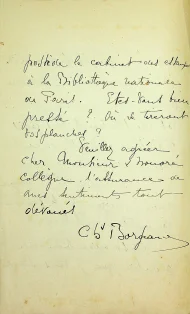 possède le cabinet des estampes
à la Bibliothèque nationale
de Paris. Etes-vous bien
pressé ? Où se tireront
vos planches ?
Veuillez agréer
cher Monsieur & honoré
collègue l'assurance de
mes sentiments tout
dévoués
Ch. Borgeaud